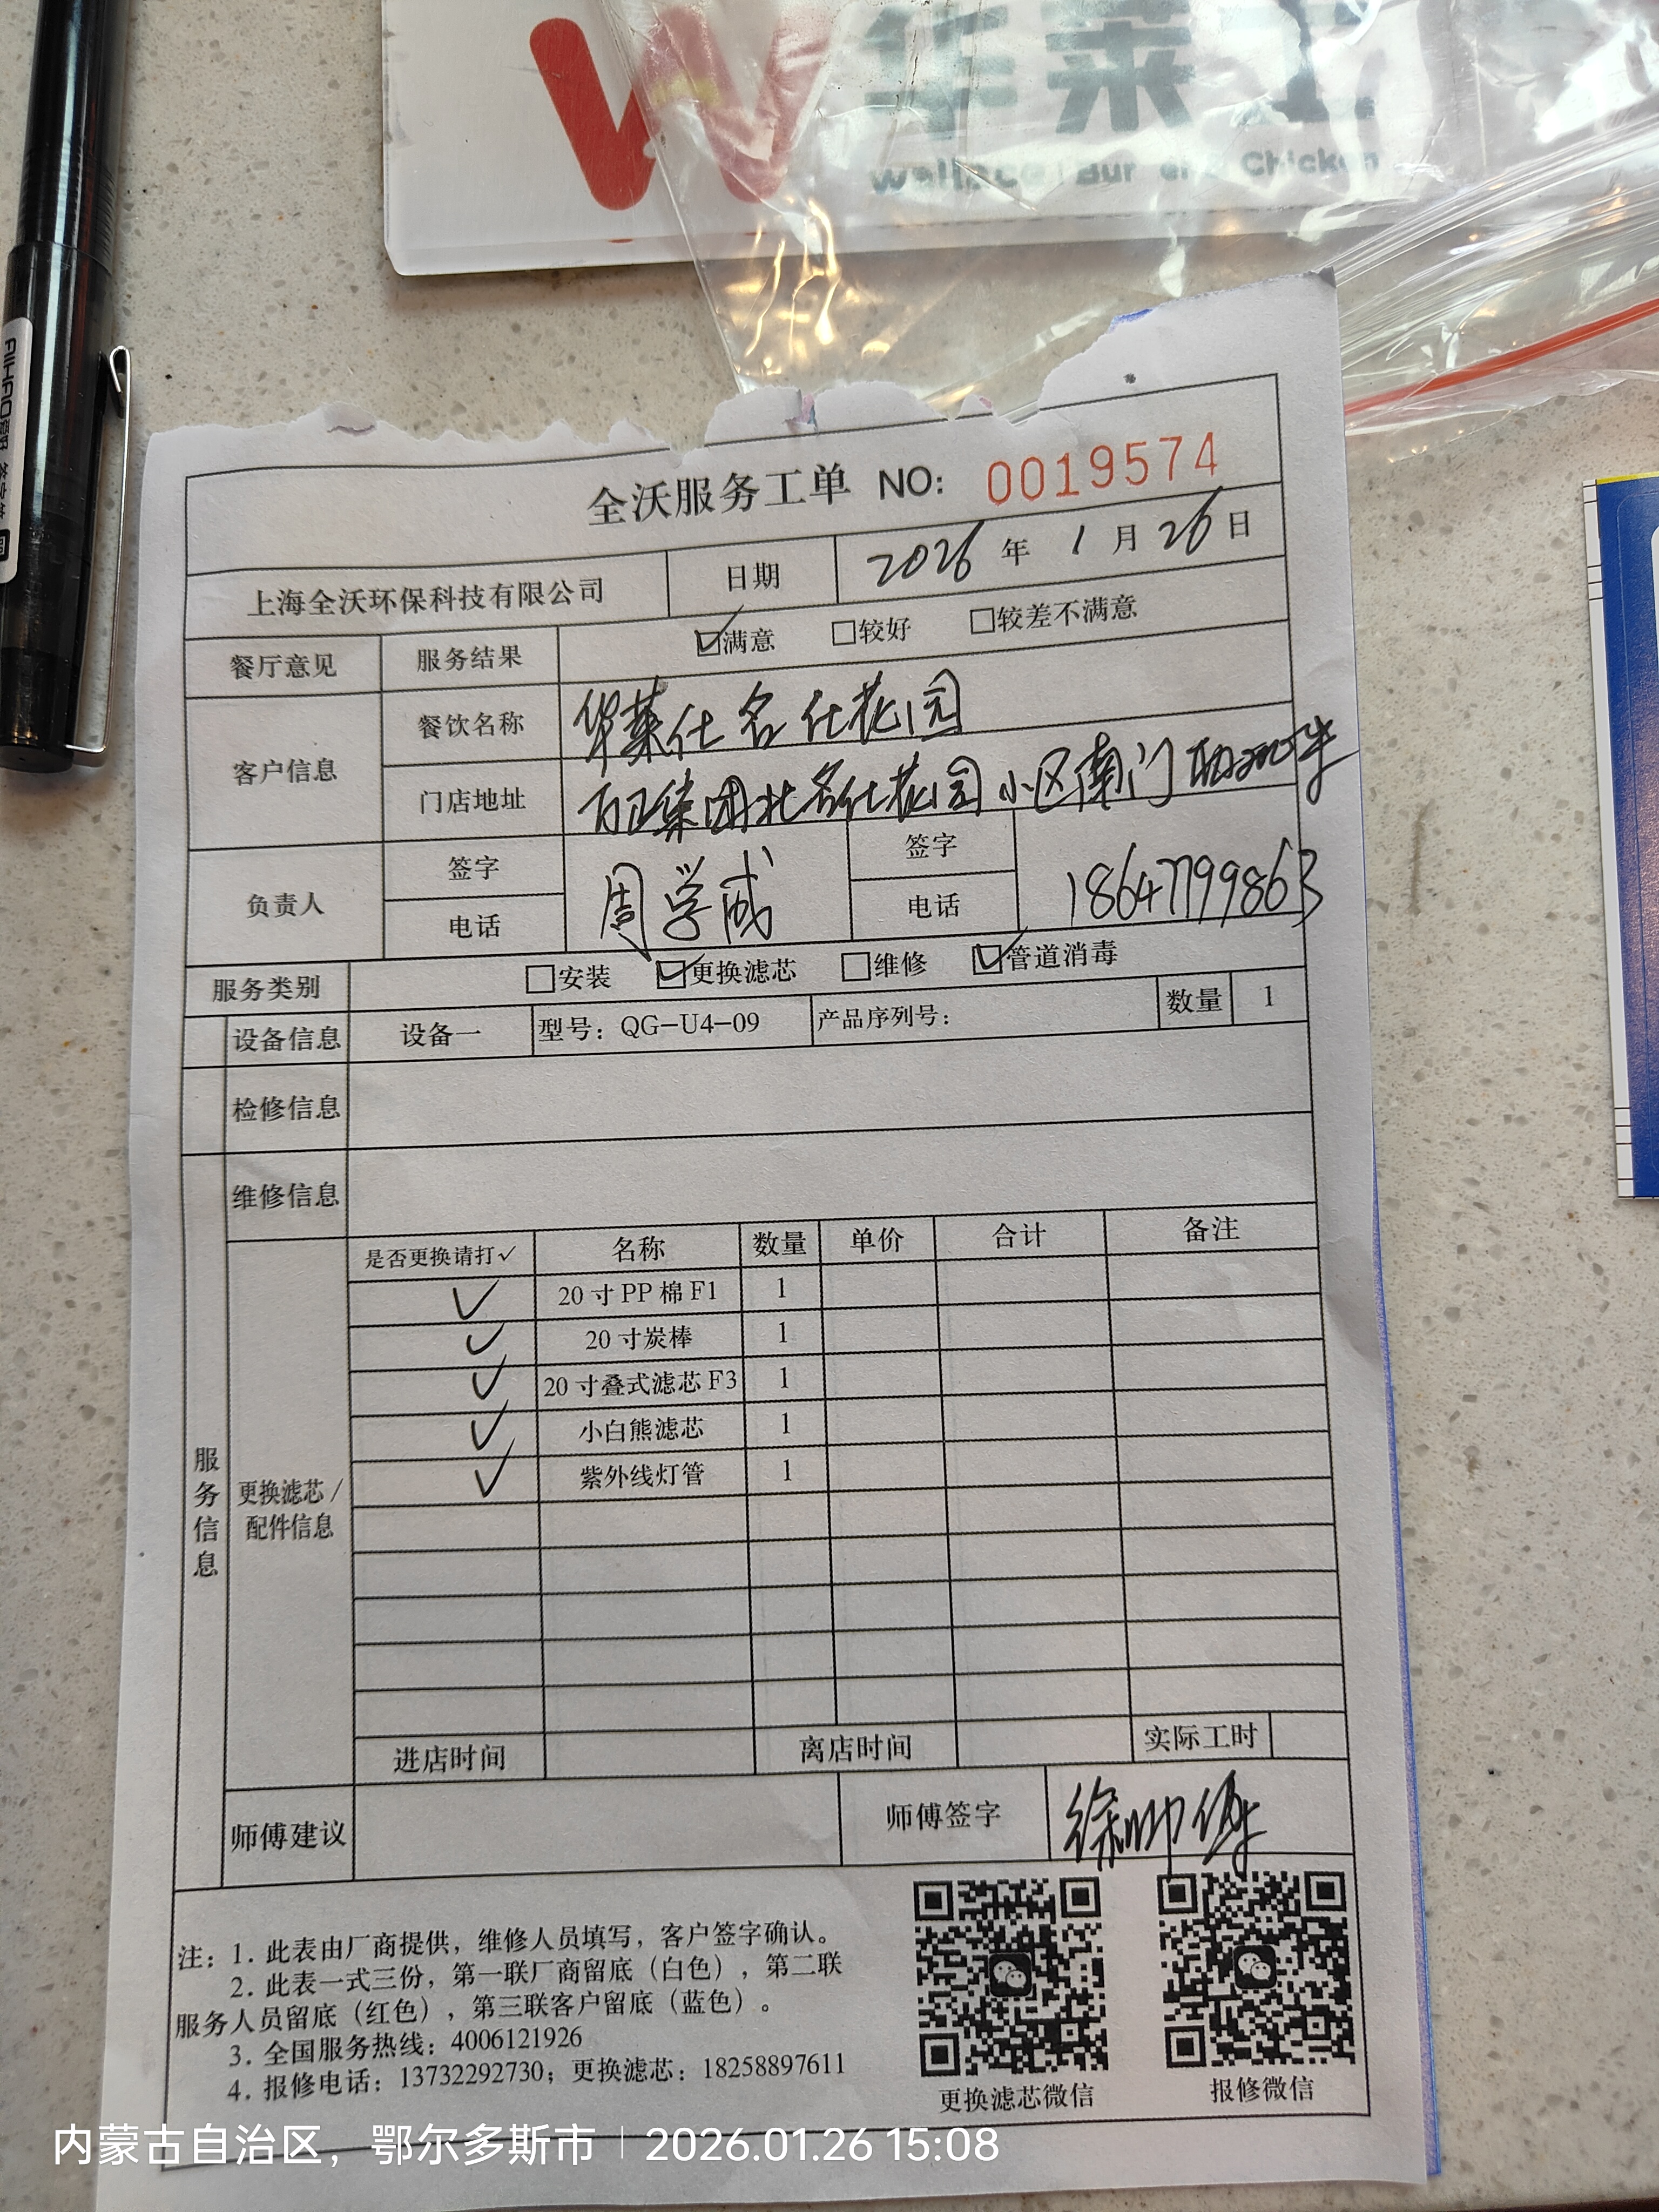 华莱士
Wallace Burger & Chicken
AIHAO
全沃服务工单 NO: 0019574
上海全沃环保科技有限公司 日期 2026 年 1 月 26 日
餐厅意见 服务结果 ☑满意 □较好 □较差不满意
客户信息 餐饮名称 华莱仕名仕花园
门店地址 万正集团北名仕花园小区南门
负责人 签字 周学成 签字
电话 电话 18647799863
服务类别 □安装 ☑更换滤芯 □维修 ☑管道消毒
设备信息 设备一 型号：QG-U4-09 产品序列号： 数量 1
检修信息
维修信息
服务信息
更换滤芯/配件信息
是否更换请打√ 名称 数量 单价 合计 备注
√ 20寸PP棉F1 1
√ 20寸炭棒 1
√ 20寸叠式滤芯F3 1
√ 小白熊滤芯 1
√ 紫外线灯管 1
进店时间 离店时间 实际工时
师傅建议 师傅签字 徐帅
注：1. 此表由厂商提供，维修人员填写，客户签字确认。
2. 此表一式三份，第一联厂商留底（白色），第二联
服务人员留底（红色），第三联客户留底（蓝色）。
3. 全国服务热线：4006121926
4. 报修电话：13732292730；更换滤芯：18258897611
更换滤芯微信 报修微信
内蒙古自治区，鄂尔多斯市 | 2026.01.26 15:08